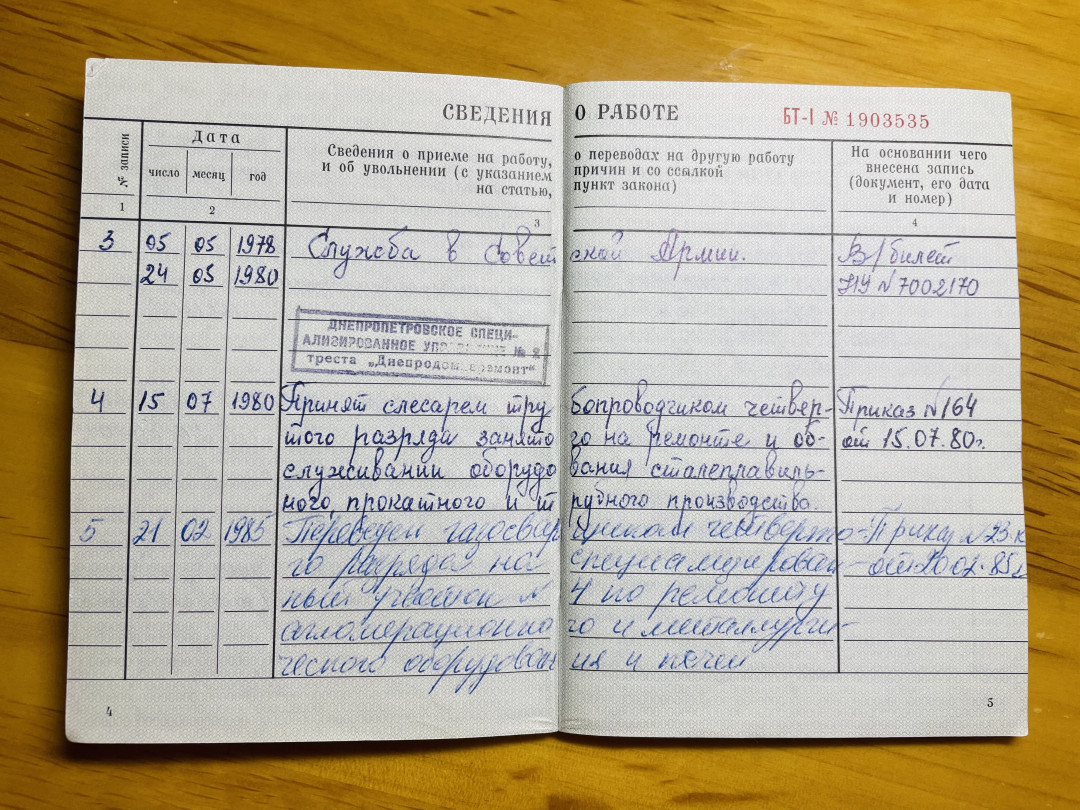 СВЕДЕНИЯ О РАБОТЕ БТ-I № 1903535
№ записи
Дата
число месяц год
Сведения о приеме на работу, о переводах на другую работу
и об увольнении (с указанием причин и со ссылкой
на статью, пункт закона)
На основании чего
внесена запись
(документ, его дата
и номер)
1 2 3 4
3 05 05 1978 Служба в Советской Армии. В/билет
24 05 1980 НУ №7002170
ДНЕПРОПЕТРОВСКОЕ СПЕЦИ-
АЛИЗИРОВАННОЕ № 2
треста
4 15 07 1980 Принят слесарем трубопроводчиком четвер- Приказ №164
того разряда занятого на ремонте и об- от 15.07.80г.
служивании оборудования сталеплавиль-
ного, прокатного и трубного производства.
5 21 02 1985 Переведен газосварщиком четверто- Приказ №23-к
го разряда на специализирован- от 20.02.85г
ный участок № 4 по ремонту
агломерационного и металлурги-
ческого оборудования и печей
4 5